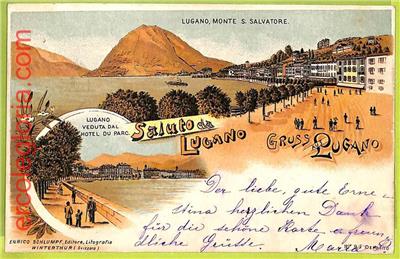 LUGANO, MONTE S. SALVATORE.
LUGANO
VEDUTA DAL
HOTEL DU PARC.
Saluto da
LUGANO
GRUSS aus LUGANO
Der liebe, gute Erne-
stina herzlichen Dank
für die schöne Karte u. freun
dliche Grüsse. Maria
ENRICO SCHLUMPF, Editore, Litografia
WINTERTHUR (Svizzera)